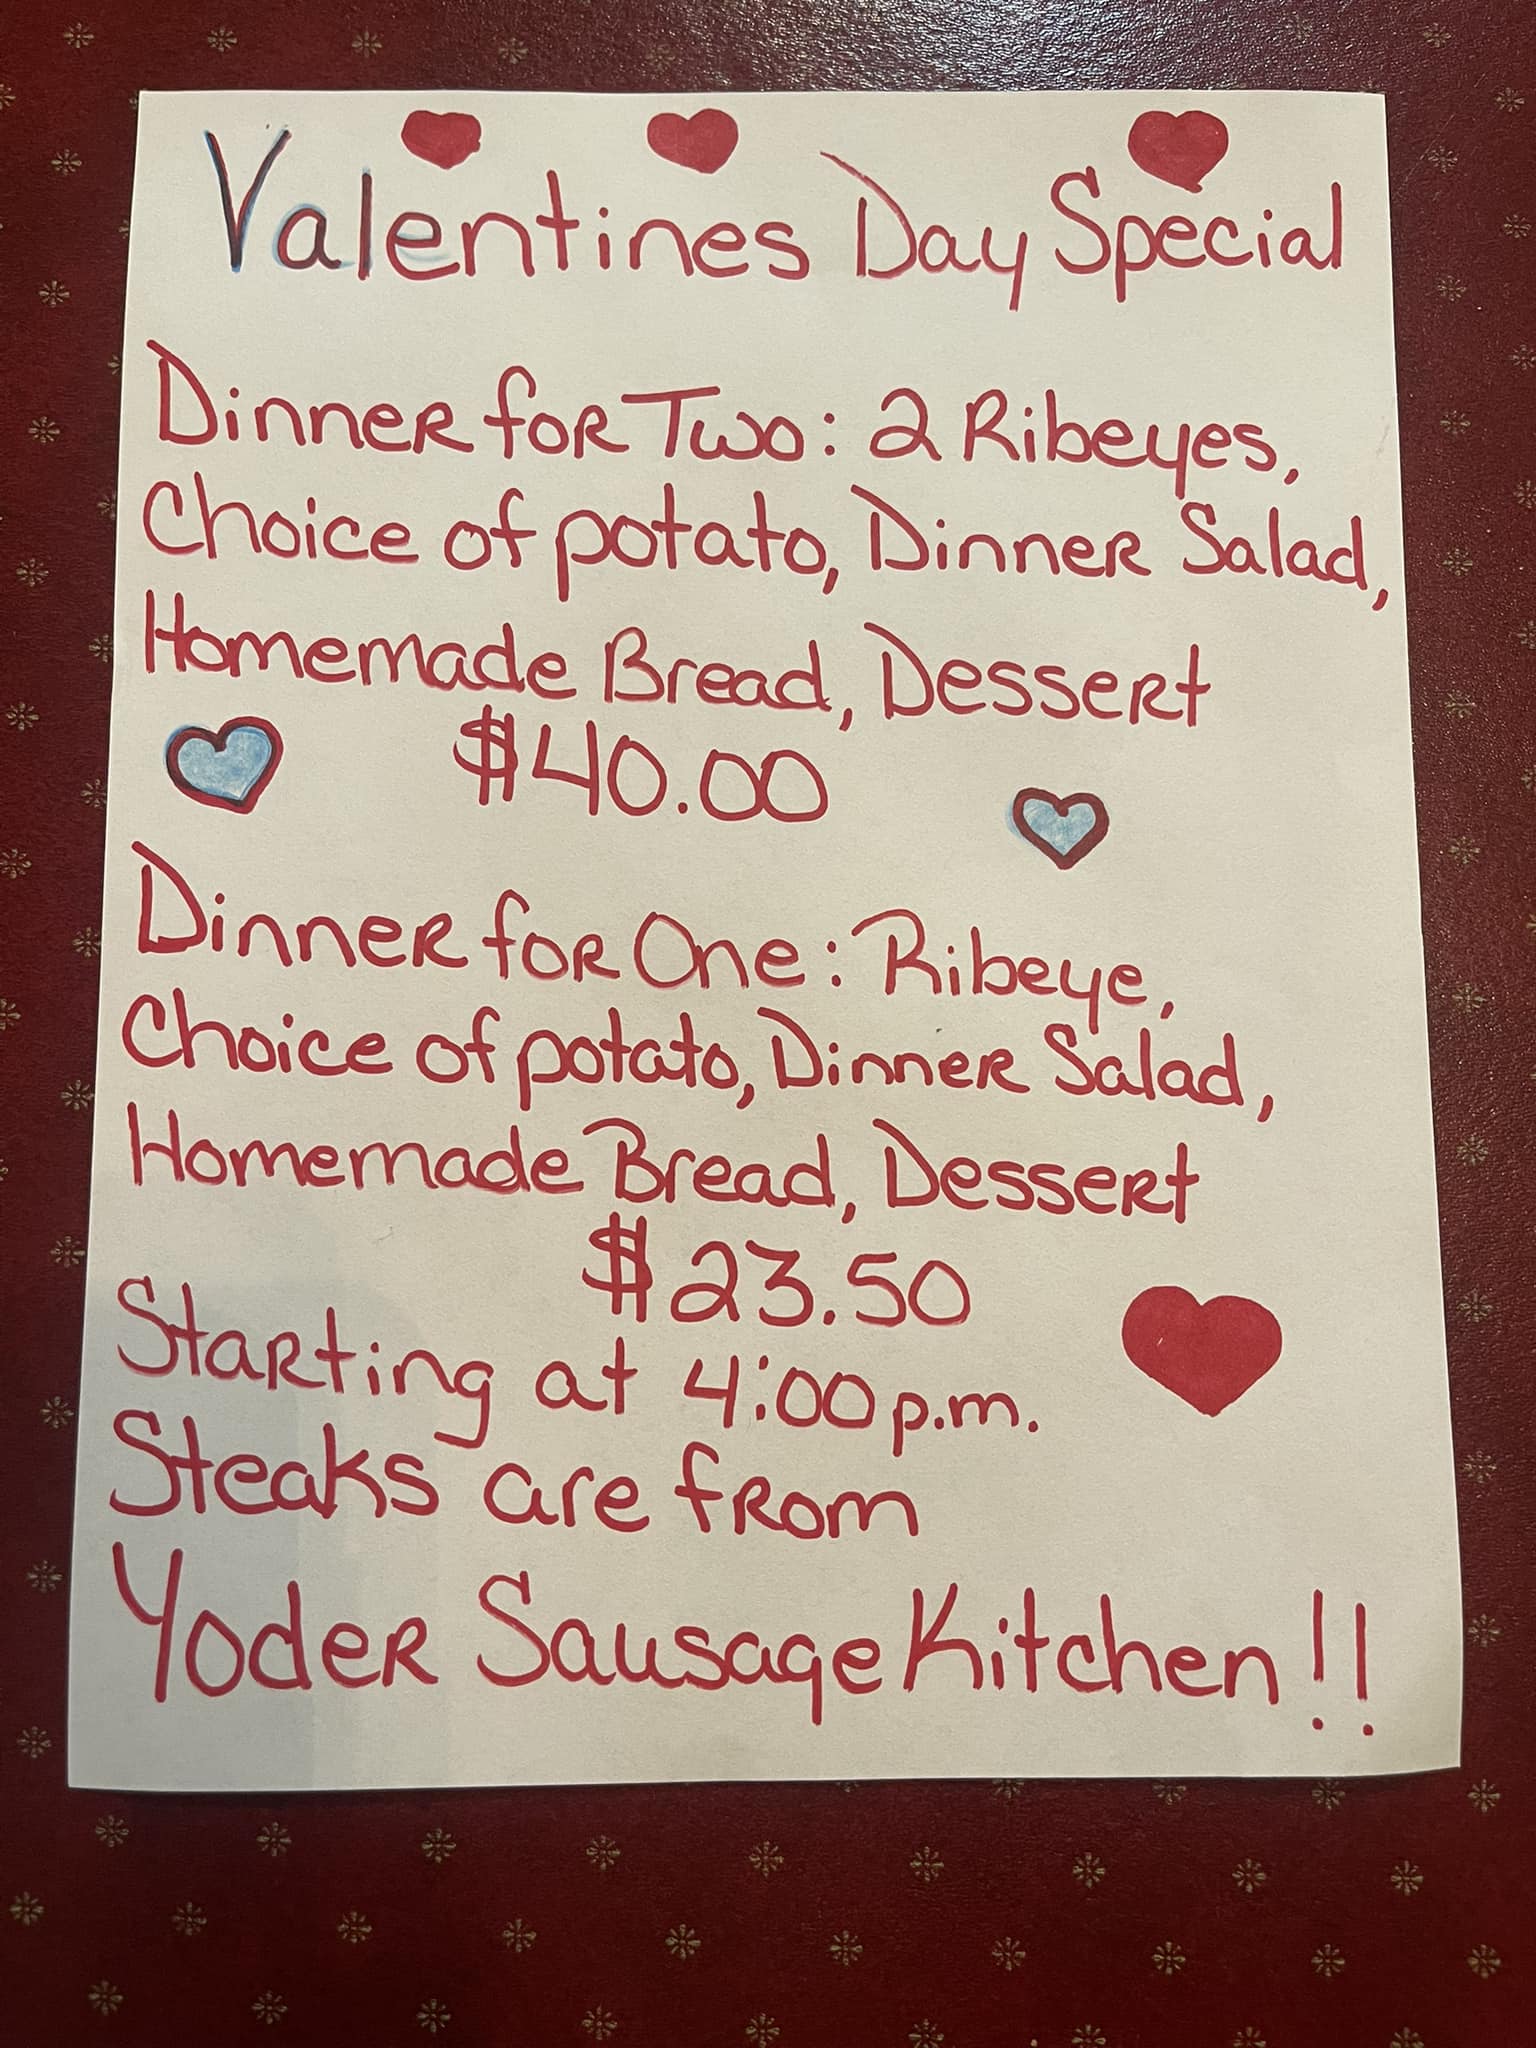 Valentines Day Special
Dinner for Two: 2 Ribeyes,
Choice of potato, Dinner Salad,
Homemade Bread, Dessert
$40.00
Dinner for One: Ribeye,
Choice of potato, Dinner Salad,
Homemade Bread, Dessert
$23.50
Starting at 4:00 p.m.
Steaks are from
Yoder Sausage Kitchen!!